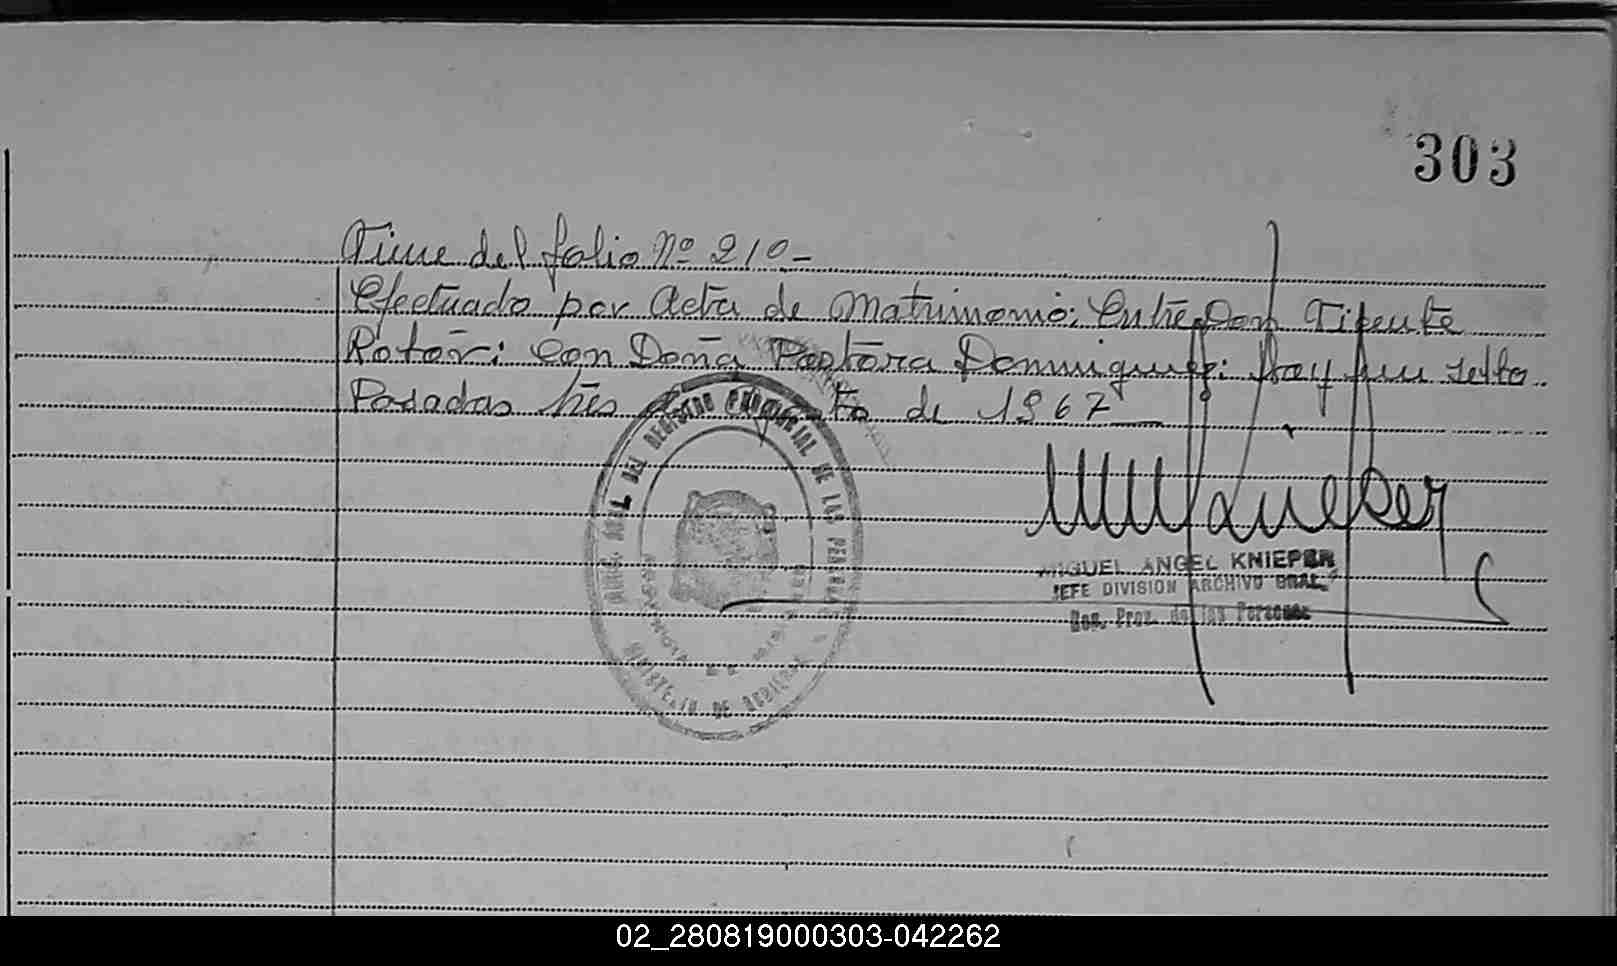 303
Viene del folio Nº 210-
Efectuado por Acta de Matrimonio: Entre Don Vicente
Rotar: Con Doña Pastora Dominguez: Hay un sello
Posadas tres de de 1967
MIGUEL ANGEL KNIEPER
JEFE DIVISION ARCHIVO GRAL.
Reg. Prov. de las Personas
ARCH. GRAL. DEL REGISTRO PROVINCIAL DE LAS PERSONAS
MINISTERIO DE GOBIERNO
02_280819000303-042262